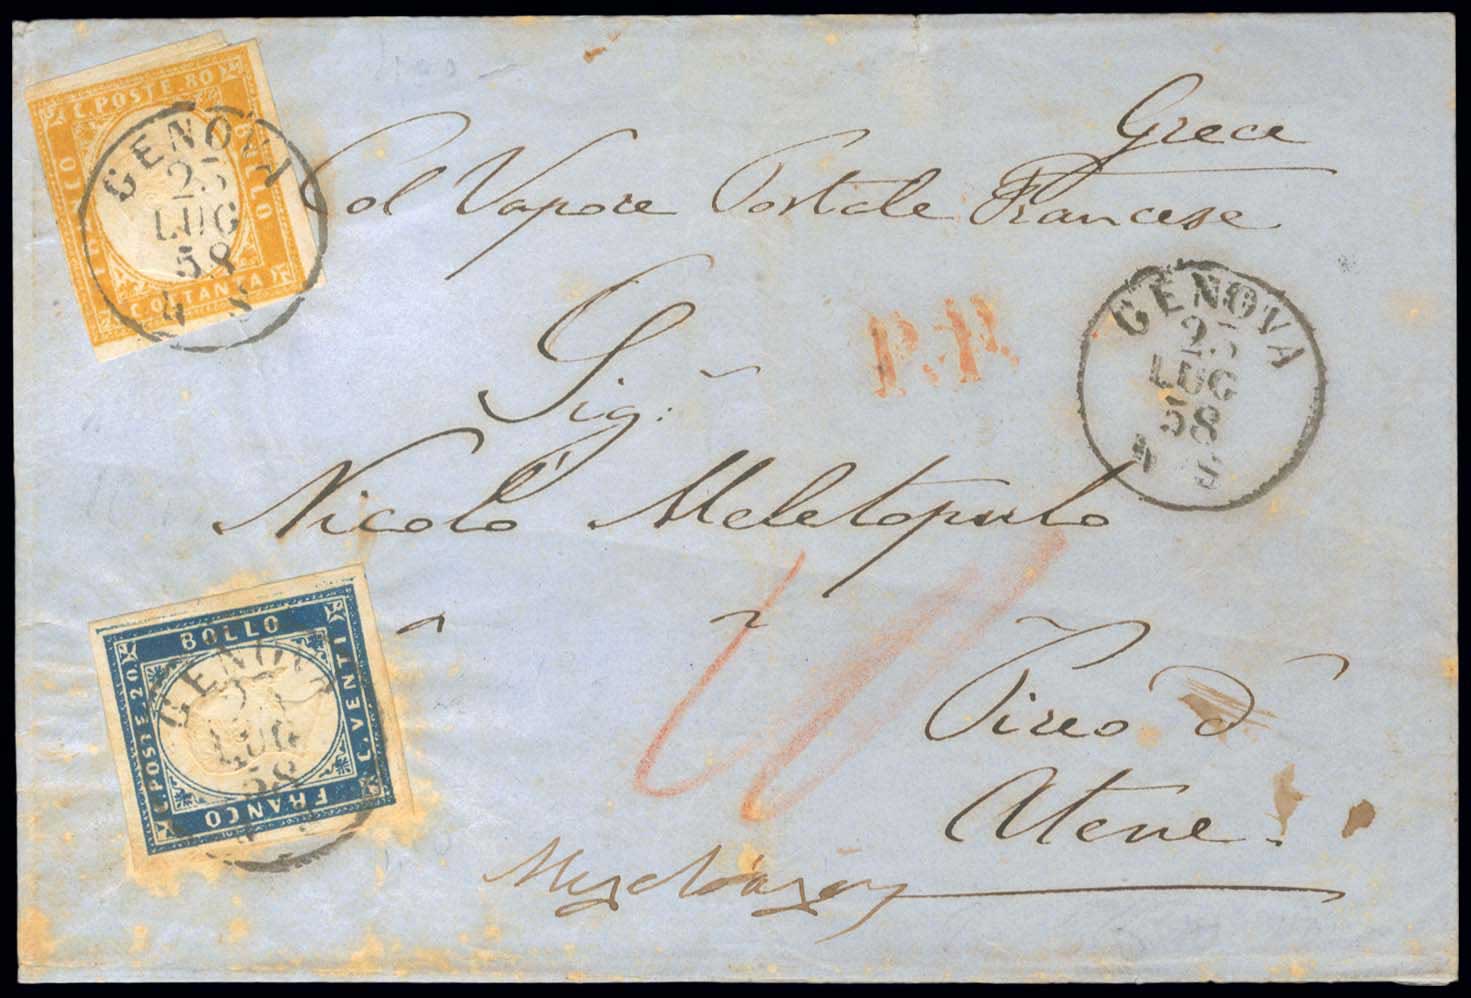 Grece
Col Vapore Postale Francese
Sig:
Nicolò Meletopulo
a
Pireo d'
Atene.
P.P.
GENOVA
25
LUG
58
C. POSTE 80
BOLLO
C. OTTANTA
GENOVA
LUG
58
C. POSTE 20
BOLLO
C. VENTI
FRANCO
GENOVA
LUG
58